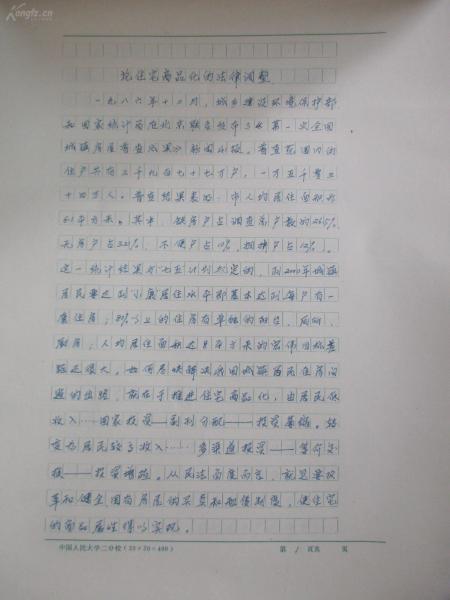 论住宅商品化的法律调整
一九八六年十二月,城乡建设环境保护部
和国家统计局在北京联合发布了《第一次全国
城镇房屋普查成果》新闻公报。普查范围内的
住户共有三千九百七十七万户,一万五千
十四万人。普查结果表明:市人均居住面积
平方米。其中,缺房户占调查总户数的
无房户占 不便户占 拥挤户占
这一统计结果与七五计划规定的,到2000年城镇
居民要达到小康居住水平即基本达到每户有一
套住房;以上的住房有单独的阳台、厕所、
厨房;人均居住面积达8平方米的宏伟目标差
距还很大。如何尽快解决我国城镇居民住房问
题的出路,就在于推进住宅商品化,由居民低
收入……国家投资——福利分配——投资萎缩。转
变为居民较多收入……多渠道投资——等价交
换——投资增殖。从民法角度而言,就是要改
革和健全国有房屋的买卖和租赁制度,使住宅
的商品属性得以实现。
中国人民大学二分校(20×20=400) 第 1 页共 页